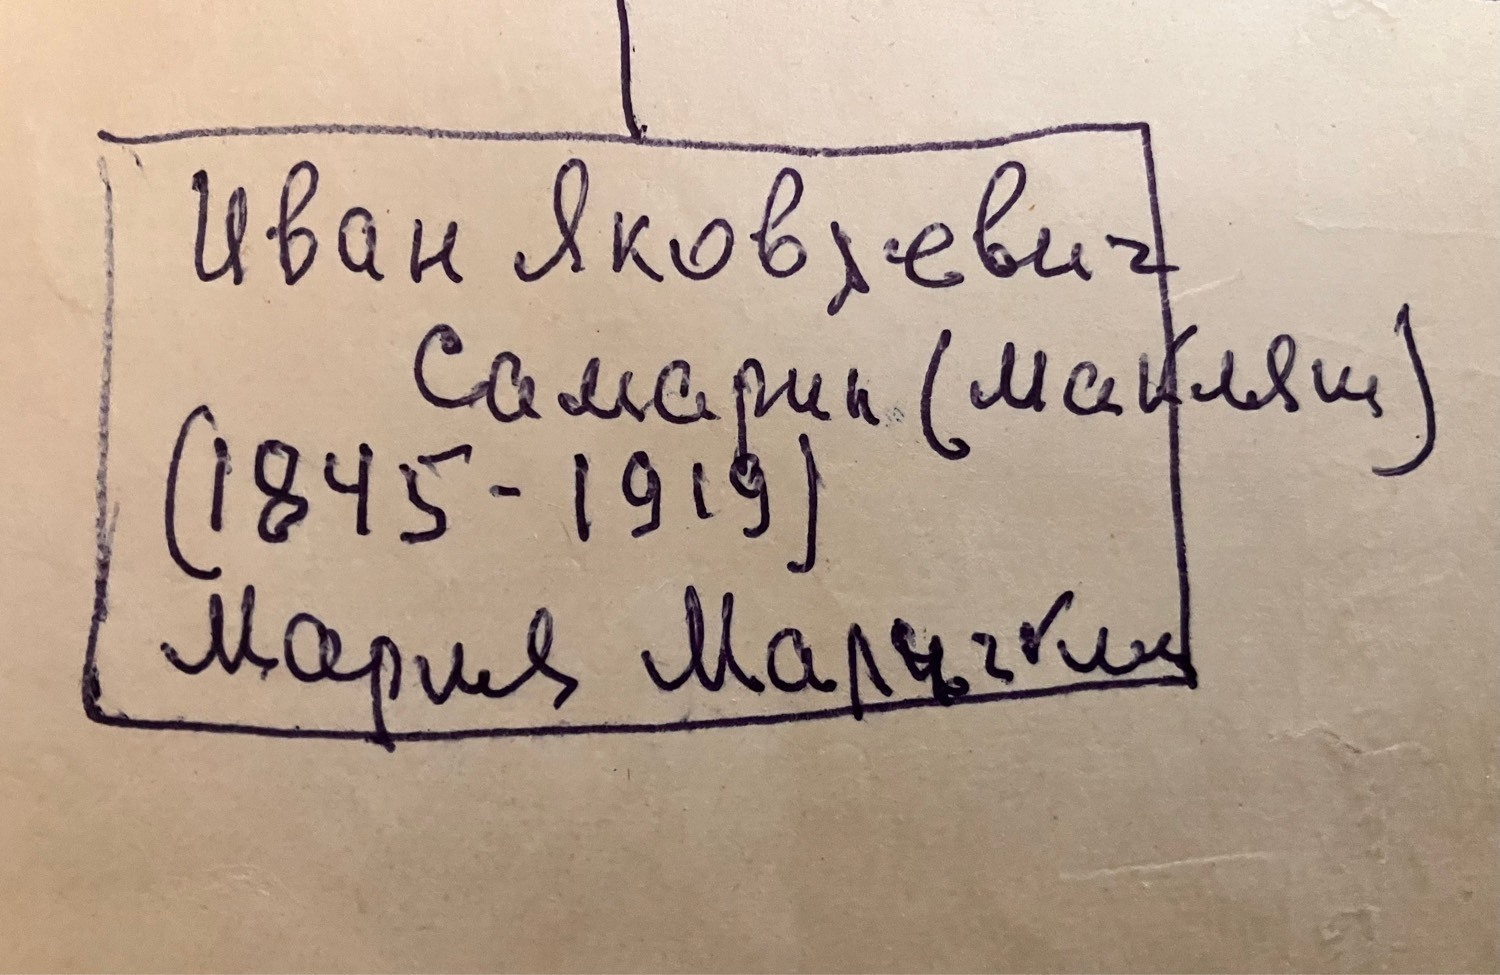 Иван Яковлевич
Самарин (Макляш)
(1845-1919)
Мария